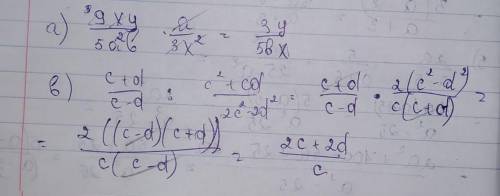 а) ³9xy/5a²b · a/3x² = 3y/5bx
в) c+d/c-d : c²+cd/2c²-2d² = c+d/c-d · 2(c²-d²)/c(c+d) =
= 2((c-d)(c+d))/c(c-d) = 2c+2d/c